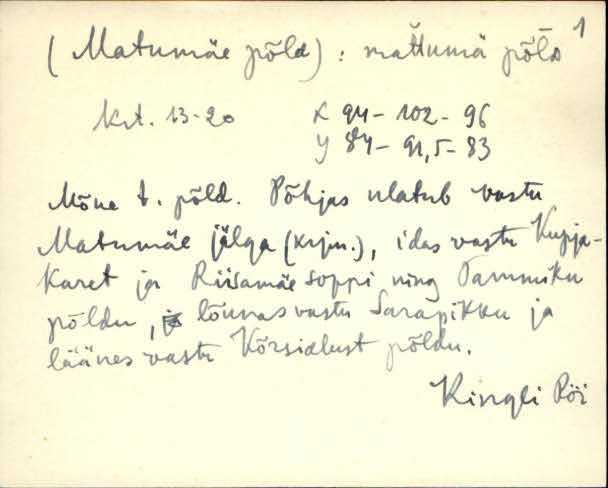 (Matumäe põld) : mattumä põld 1
Krt. 13-20 X 94 - 102 - 96
Y 84 - 91,5 - 83
Mõne t. põld. Põhjas ulatub vastu
Matumäe jälga (krjm.), idas vastu Kupja-
karet ja Riisamäe soppi ning Tammiku
põldu, lõunas vastu Sarapikku ja
läänes vastu Kõrsialust põldu.
Kingli Röi